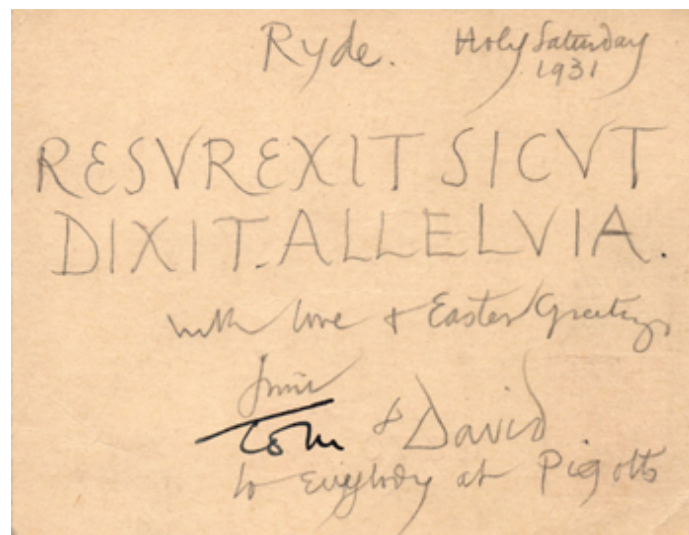 Ryde. Holy Saturday
1931
RESVREXIT SICVT
DIXIT. ALLELVIA.
with love & Easter Greetings
from
Tom & David
to Everybody at Pigotts